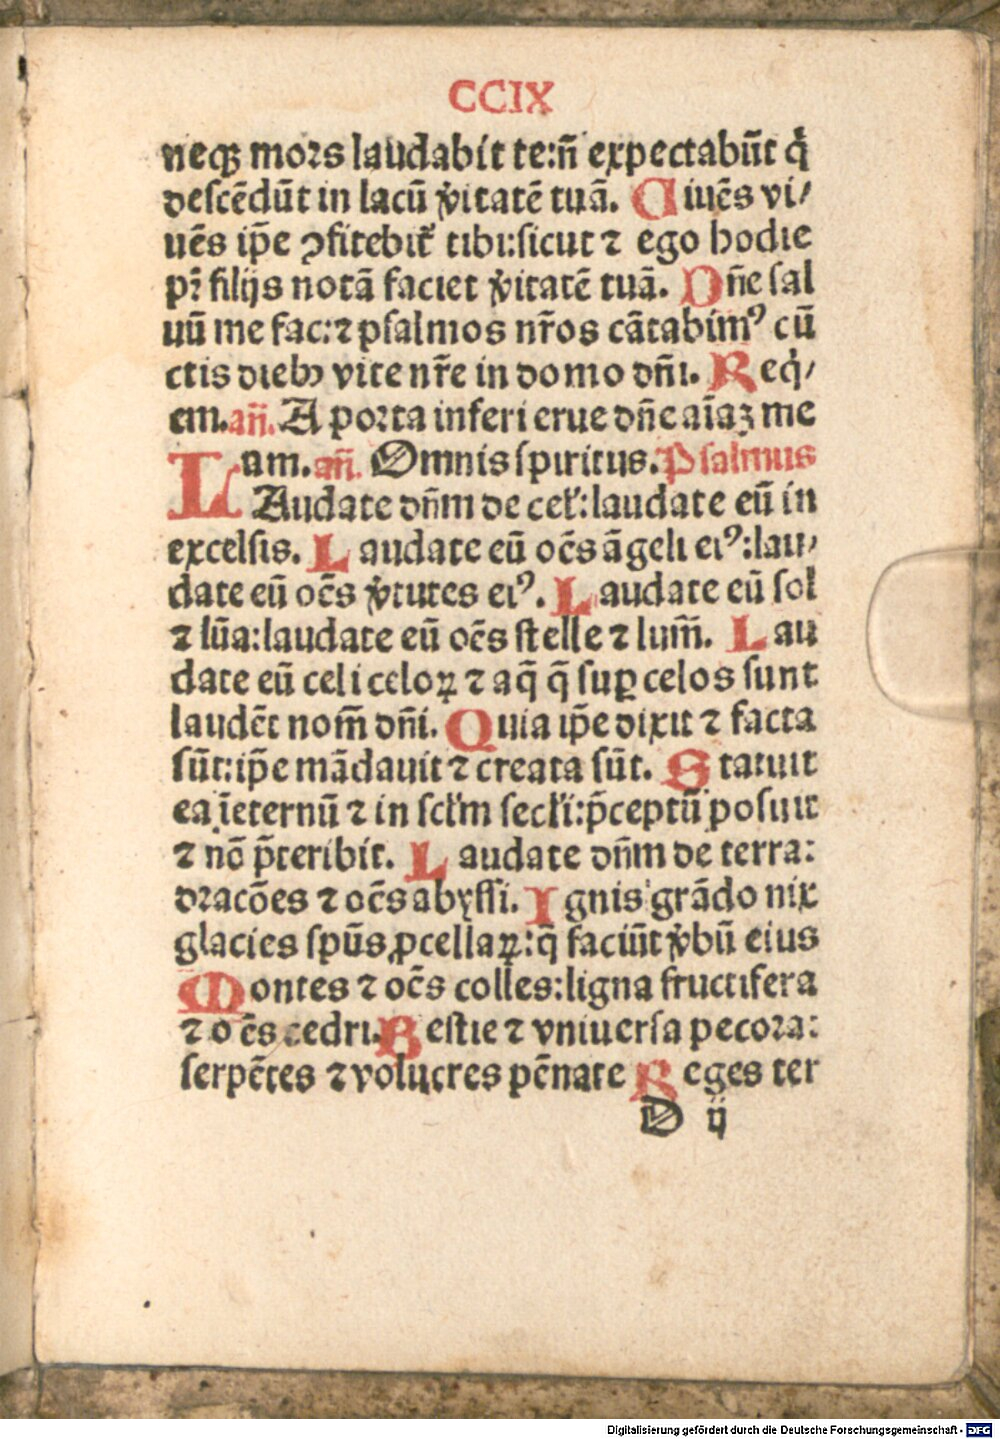 CCIX
neqꝫ moꝛs laudabit te:n̄ expectabūt q̇
deſcēdūt in lacū v̓itatē tuā. Ciuēs vi/
uēs ip̄e ꝯfitebit᷑ tibi:ſicut ⁊ ego hodie
pr̄ filijs notā faciet v̓itatē tuā. Dn̄e ſal
uū me fac:⁊ pſalmos nr̄os cātabimꝰ cū
ctis diebꝫ vite nr̄e in domo dn̄i. Req̇/
em.an̄. A poꝛta inferi erue dn̄e aīaꝫ me
am.an̄. Omnis ſpiritus. Pſalmus
LAudate dn̄m de cel̓:laudate eū in
excelſis. Laudate eū oēs āgeli eiꝰ:lau/
date eū oēs v̓tutes eiꝰ. Laudate eū ſol
⁊ lūa:laudate eū oēs ſtelle ⁊ lum̄. Lau
date eū celi celoꝝ ⁊ aq̄ q̄ ſuꝑ celos ſunt
laudēt nom̄ dn̄i. Quia ip̄e dixit ⁊ facta
ſūt:ip̄e mādauit ⁊ creata ſūt. Statuit
ea īeternū ⁊ in ſcl̓m ſecl̓i:p̄ceptū poſuit
⁊ nō p̄teribit. Laudate dn̄m de terra:
dꝛacōes ⁊ oēs abyſſi. Ignis grādo nix
glacies ſpūs ꝓcellaꝝ:q̄ faciūt v̓bū eius
Montes ⁊ oēs colles:ligna fructifera
⁊ oēs cedri. Beſtie ⁊ vniuerſa pecoꝛa:
ſerpētes ⁊ volucres pēnate Reges ter
D ij
Digitalisierung gefördert durch die Deutsche Forschungsgemeinschaft - DFG